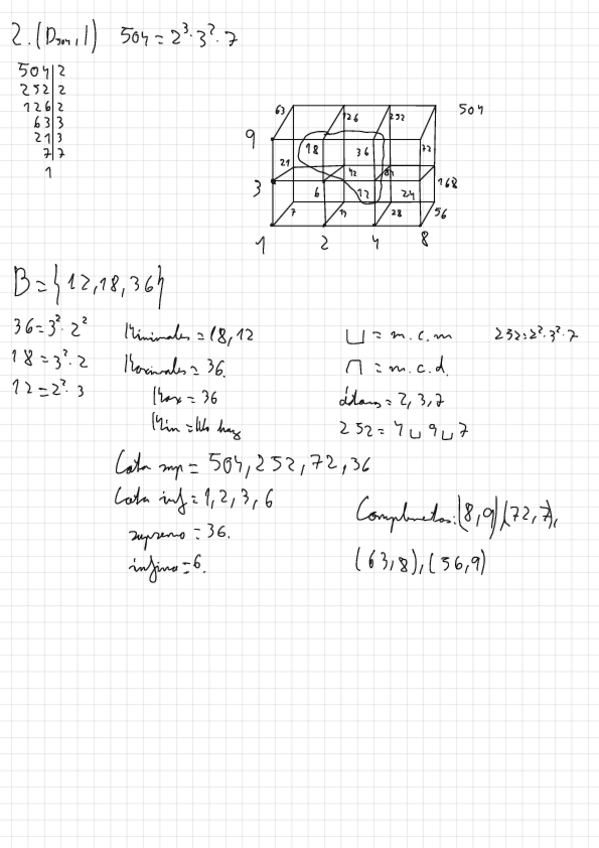 2. (D504, |) 504 = 2³·3²·7
504 | 2
252 | 2
126 | 2
63 | 3
21 | 3
7 | 7
1
63 126 252 504
9 18 36 72
21 42 84 168
3 6 12 24
7 14 28 56
1 2 4 8
B = {12,18,36}
36 = 3²·2²
18 = 3²·2
12 = 2²·3
Minimales = 18,12
Maximales = 36.
Max = 36
Min = No hay
⊔ = m.c.m 252 = 2²·3²·7
⊓ = m.c.d.
átomos = 2,3,7
252 = 4 ⊔ 9 ⊔ 7
Cota sup = 504, 252, 72, 36
Cota inf = 1, 2, 3, 6
supremo = 36.
infimo = 6.
Complementos: (8,9), (72,7),
(63,8), (56,9)